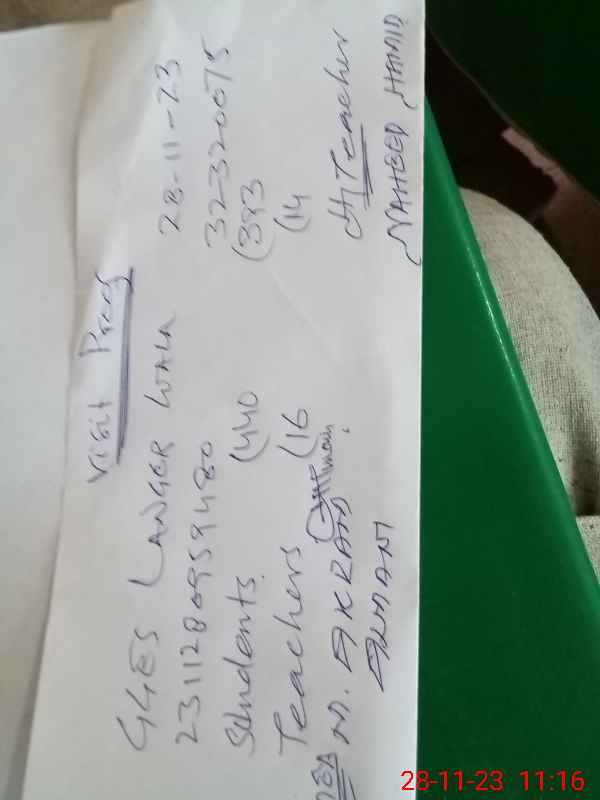 Visit Proof
GGES LANGER WALA 28-11-23
231128 32320075
Students (440 (393
Teachers (16 (14
M. AKRAM H/Teacher
NAHEED HAMID
28-11-23 11:16